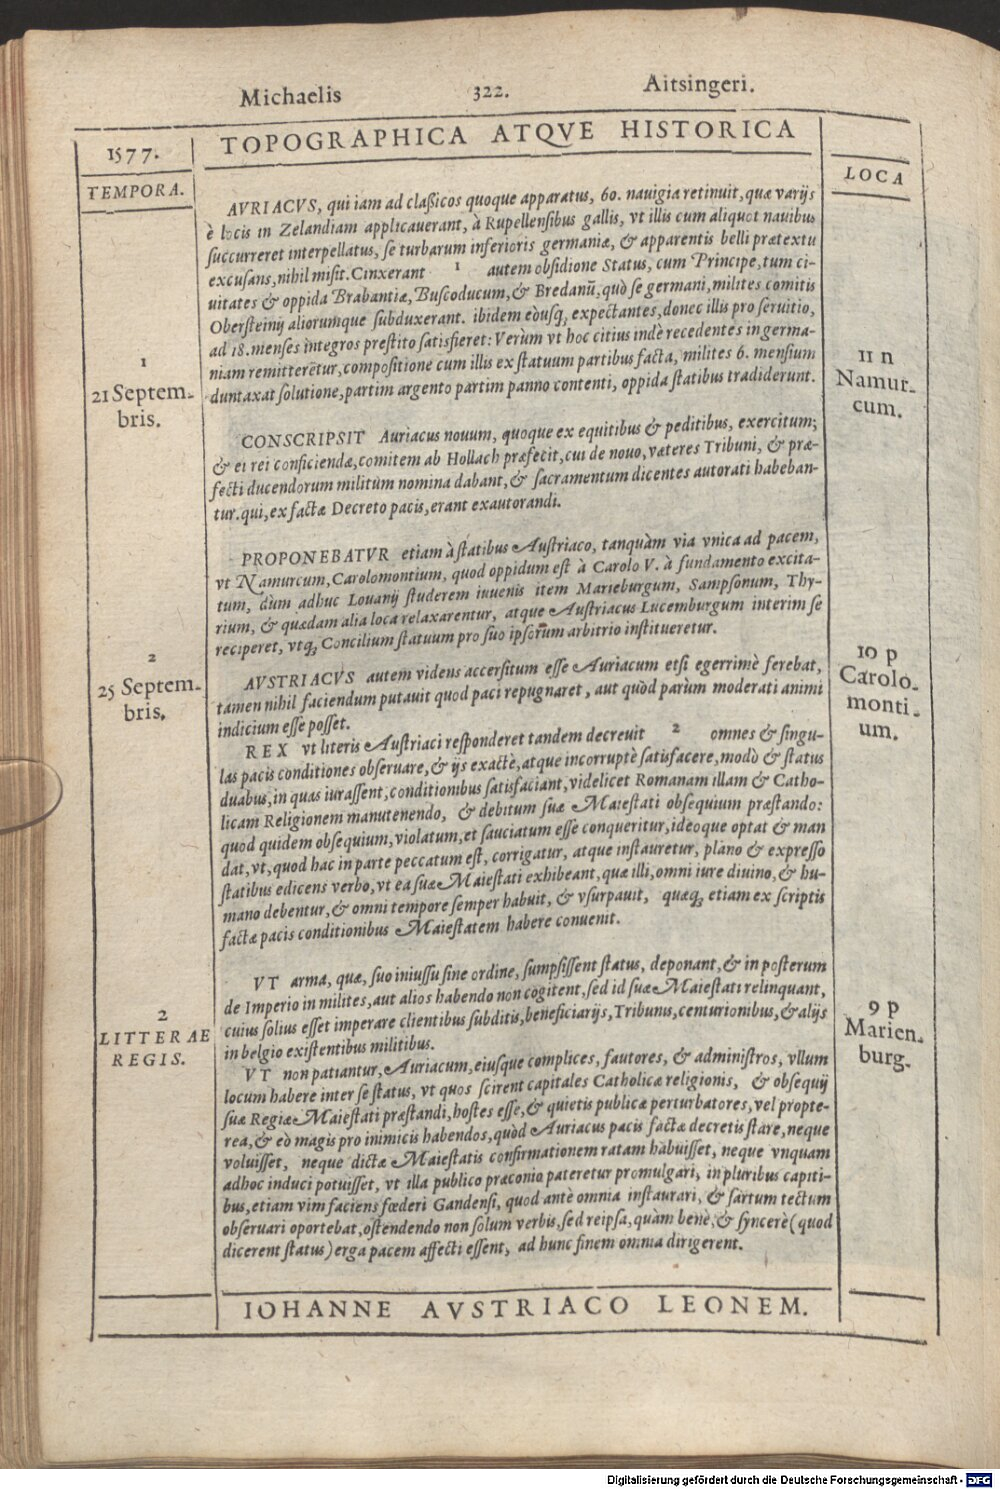 Michaelis 322. Aitsingeri.
1577. TOPOGRAPHICA ATQVE HISTORICA
TEMPORA.
LOCA
AVRIACVS, qui iam ad claßicos quoque apparatus, 60. nauigia retinuit, quæ varijs
è locis in Zelandiam applicauerant, à Rupellensibus gallis, vt illis cum aliquot nauibus
succurreret interpellatus, se turbarum inferioris germaniæ, & apparentis belli prætextu
excusans, nihil misit. Cinxerant 1 autem obsidione Status, cum Principe, tum ci-
uitates & oppida Brabantiæ, Buscoducum, & Bredanũ, quò se germani, milites comitis
Obersteinij aliorumque subduxerant. ibidem eòusq; expectantes, donec illis pro seruitio,
ad 18. menses integros prestito satisfieret: Verùm vt hoc citius indè recedentes in germa-
niam remitterẽtur, compositione cum illis ex statuum partibus facta, milites 6. mensium
duntaxat solutione, partim argento partim panno contenti, oppida statibus tradiderunt.
1
21 Septem-
bris.
11 n
Namur-
cum.
CONSCRIPSIT Auriacus nouum, quoque ex equitibus & peditibus, exercitum;
& ei rei conficiendæ, comitem ab Hollach præfecit, cui de nouo, vateres Tribuni, & præ-
fecti ducendorum militum nomina dabant, & sacramentum dicentes autorati habeban-
tur. qui, ex factæ Decreto pacis, erant exautorandi.
PROPONEBATVR etiam à statibus Austriaco, tanquàm via vnica ad pacem,
vt Namurcum, Carolomontium, quod oppidum est à Carolo V. à fundamento excita-
tum, dùm adhuc Louanij studerem iuuenis item Marieburgum, Sampsonum, Thy-
rium, & quædam alia loca relaxarentur, atque Austriacus Lucemburgum interim se
reciperet, vtq; Concilium statuum pro suo ipsorum arbitrio institueretur.
2
25 Septem-
bris.
10 p
Carolo-
monti-
um.
AVSTRIACVS autem videns accersitum esse Auriacum etsi egerrimè ferebat,
tamen nihil faciendum putauit quod paci repugnaret, aut quòd parùm moderati animi
indicium esse posset.
REX vt literis Austriaci responderet tandem decreuit 2 omnes & singu-
las pacis conditiones obseruare, & ijs exactè, atque incorruptè satisfacere, modò & status
duabus, in quas iurassent, conditionibus satisfaciant, videlicet Romanam illam & Catho-
licam Religionem manutenendo, & debitum suæ Maiestati obsequium præstando:
quod quidem obsequium, violatum, et sauciatum esse conqueritur, ideoque optat & man
dat, vt, quod hac in parte peccatum est, corrigatur, atque instauretur, plano & expresso
statibus edicens verbo, vt ea suæ Maiestati exhibeant, quæ illi, omni iure diuino, & hu-
mano debentur, & omni tempore semper habuit, & vsurpauit, quæq; etiam ex scriptis
factæ pacis conditionibus Maiestatem habere conuenit.
VT arma, quæ, suo iniussu sine ordine, sumpsissent status, deponant, & in posterum
de Imperio in milites, aut alios habendo non cogitent, sed id suæ Maiestati relinquant,
cuius solius esset imperare clientibus subditis, beneficiarijs, Tribunis, centurionibus, & alijs
in belgio existentibus militibus.
2
LITTERAE
REGIS.
9 p
Marien-
burg.
VT non patiantur, Auriacum, eiusque complices, fautores, & administros, vllum
locum habere inter se status, vt quos scirent capitales Catholicæ religionis, & obsequij
suæ Regiæ Maiestati præstandi, hostes esse, & quietis publicæ perturbatores, vel propte-
rea, & eò magis pro inimicis habendos, quòd Auriacus pacis factæ decretis stare, neque
voluisset, neque dictæ Maiestatis confirmationem ratam habuisset, neque vnquam
adhoc induci potuisset, vt illa publico præconio pateretur promulgari, in pluribus capiti-
bus, etiam vim faciens fœderi Gandensi, quod antè omnia instaurari, & sartum tectum
obseruari oportebat, ostendendo non solum verbis, sed reipsa, quàm benè, & syncerè (quod
dicerent status) erga pacem affecti essent, ad hunc finem omnia dirigerent.
IOHANNE AVSTRIACO LEONEM.
Digitalisierung gefördert durch die Deutsche Forschungsgemeinschaft - DFG